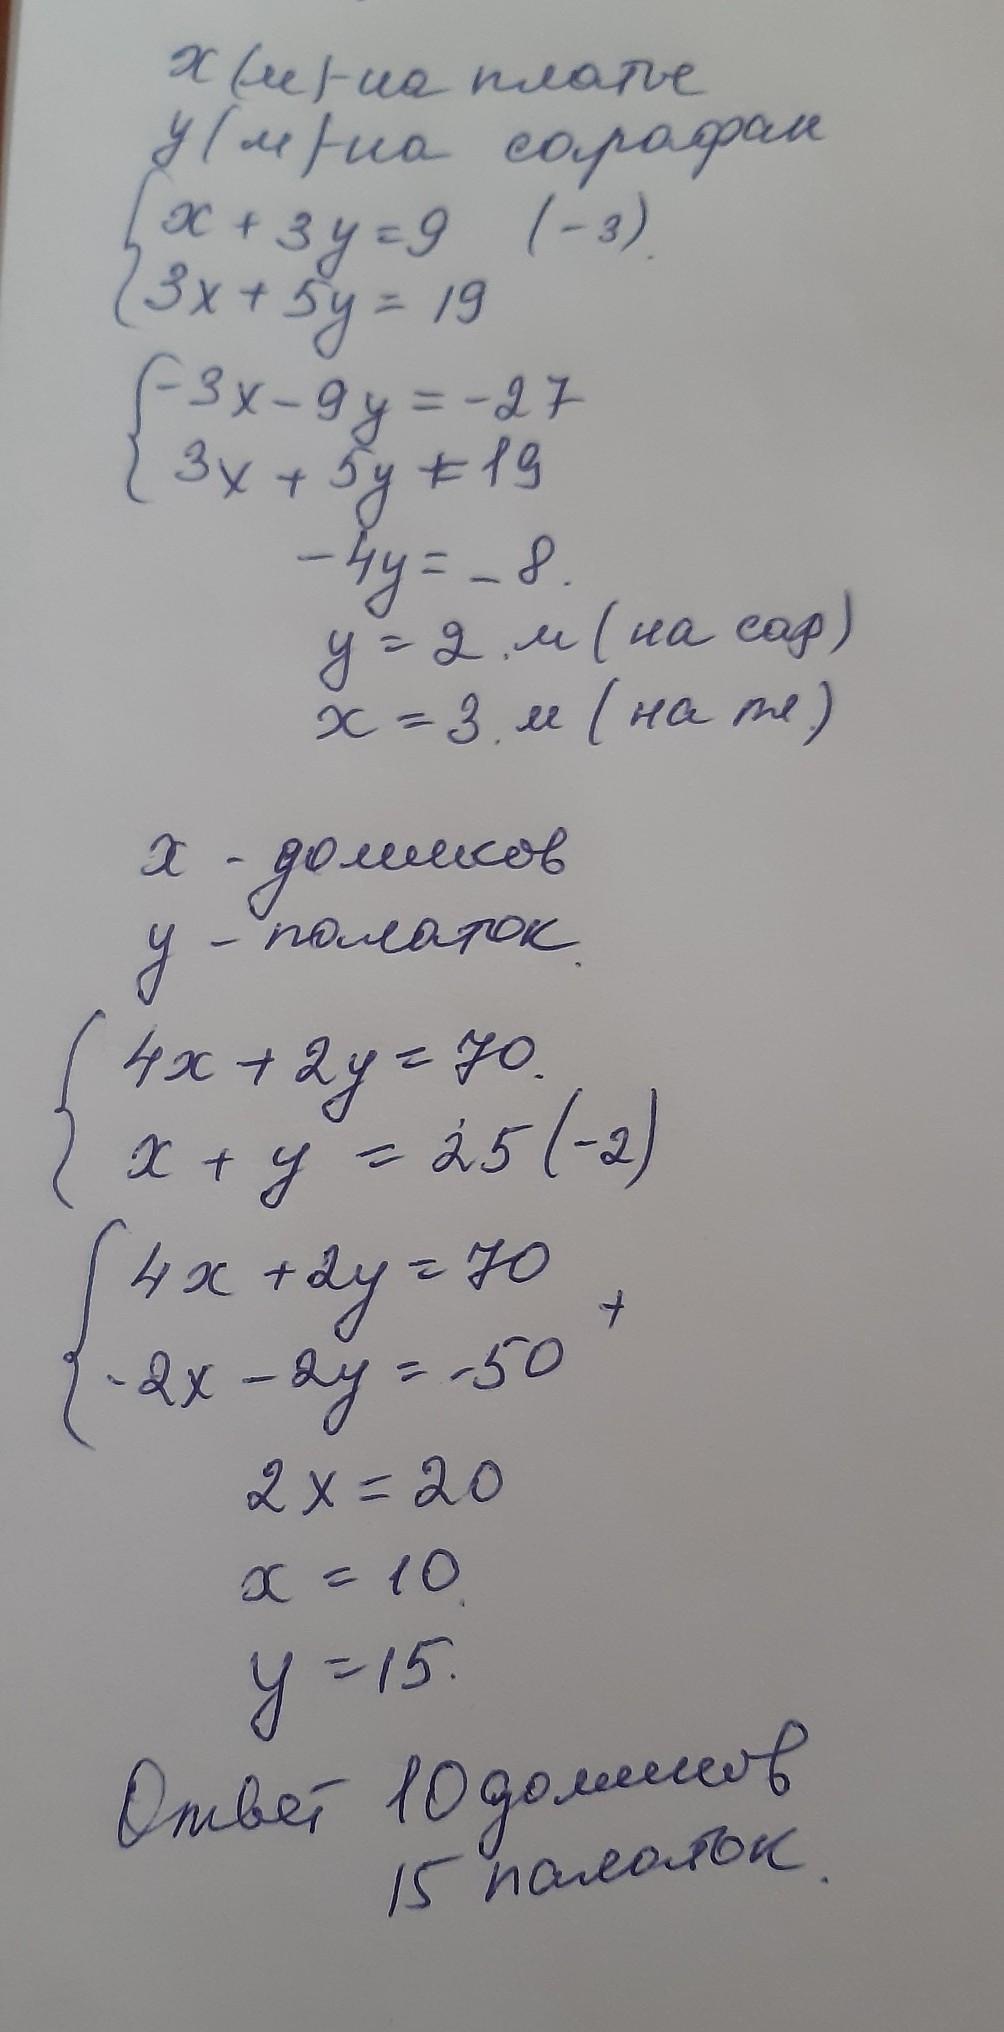 x (м) - на платье
y (м) - на сарафан
x + 3y = 9 (-3).
3x + 5y = 19
-3x - 9y = -27
3x + 5y = 19
-4y = -8.
y = 2.м (на сар)
x = 3.м (на пл.)
x - домиков
y - палаток.
4x + 2y = 70.
x + y = 25 (-2)
4x + 2y = 70
+
-2x - 2y = -50
2x = 20
x = 10.
y = 15.
Ответ 10 домиков
15 палаток.